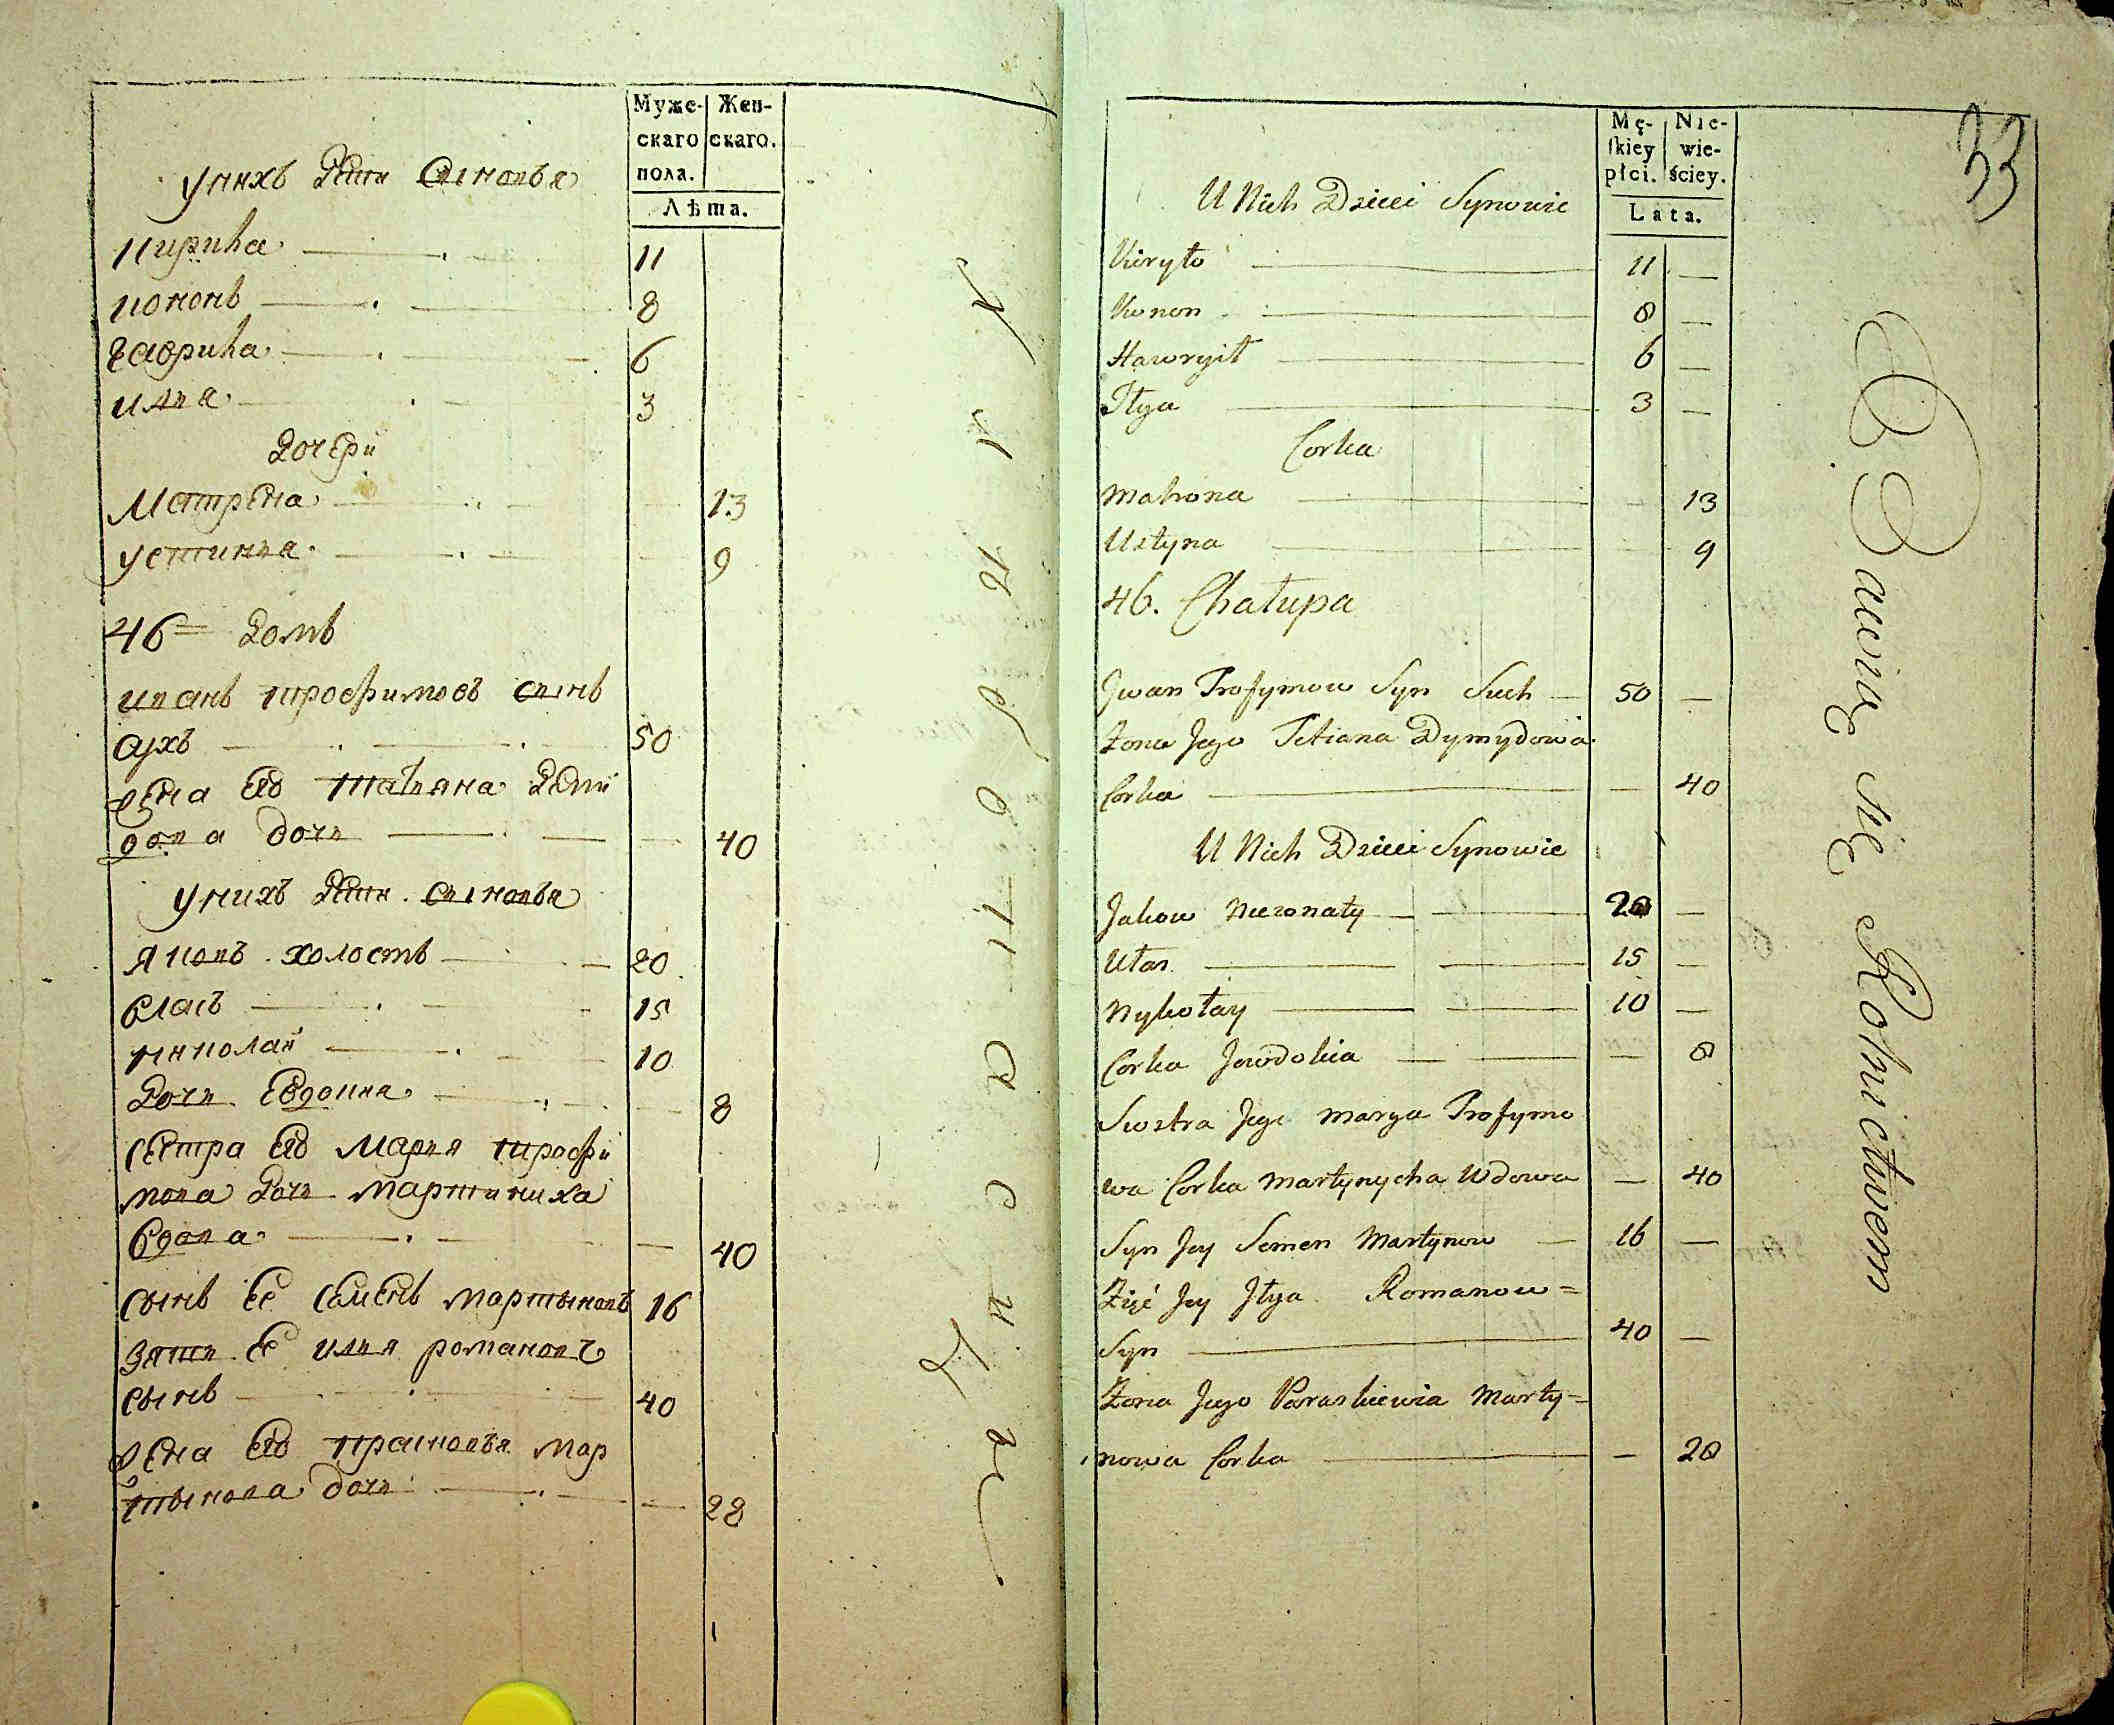 Муже-
скаго
пола.
Жен-
скаго.
Лѣта.
У нихъ Дѣти Сыновья
Кирила 11
Кононъ 8
Гаврила 6
Илья 3
Дочери
Матрена 13
Устинья 9
46 Домъ
Иванъ Трофимовъ сынъ
Сухъ 50
Жена Его Татьяна Деми
дова дочь 40
У нихъ Дѣти Сыновья
Яковъ холостъ 20
Власъ 15
Николай 10
Дочь Евдокия 8
Сестра Его Марья Трофи
мова Дочь Мартиниха
Вдова 40
Сынъ Ее Семенъ Мартыновъ 16
Зять Ее Илья Романовъ
сынъ 40
Жена Его Прасковья Мар
тынова дочь 28
Mę-
skiey
płci.
Nie-
wie-
ściey.
Lata.
33
U Nich Dzieci Synowie
Kiryło 11 —
Konon 8 —
Hawryił 6 —
Iłya 3 —
Corka
Matrona — 13
Ustyna — 9
46. Chałupa
Jwan Trofymow Syn Such — 50 —
Żona Jego Tetiana Dymydowa
Corka — 40
U Nich Dzieci Synowie
Jakow Nieżonaty — 20 —
Ułas 15 —
Nykołay 10 —
Corka Jewdokia — 8
Siostra Jego Marya Trofymo
wa Corka Martynycha Wdowa — 40
Syn Jey Semen Martynow — 16 —
Zięć Jey Jłya Romanow=
Syn 40 —
Żona Jego Paraskiewia Marty=
nowa Corka — 28
Bawią się Rolnictwem